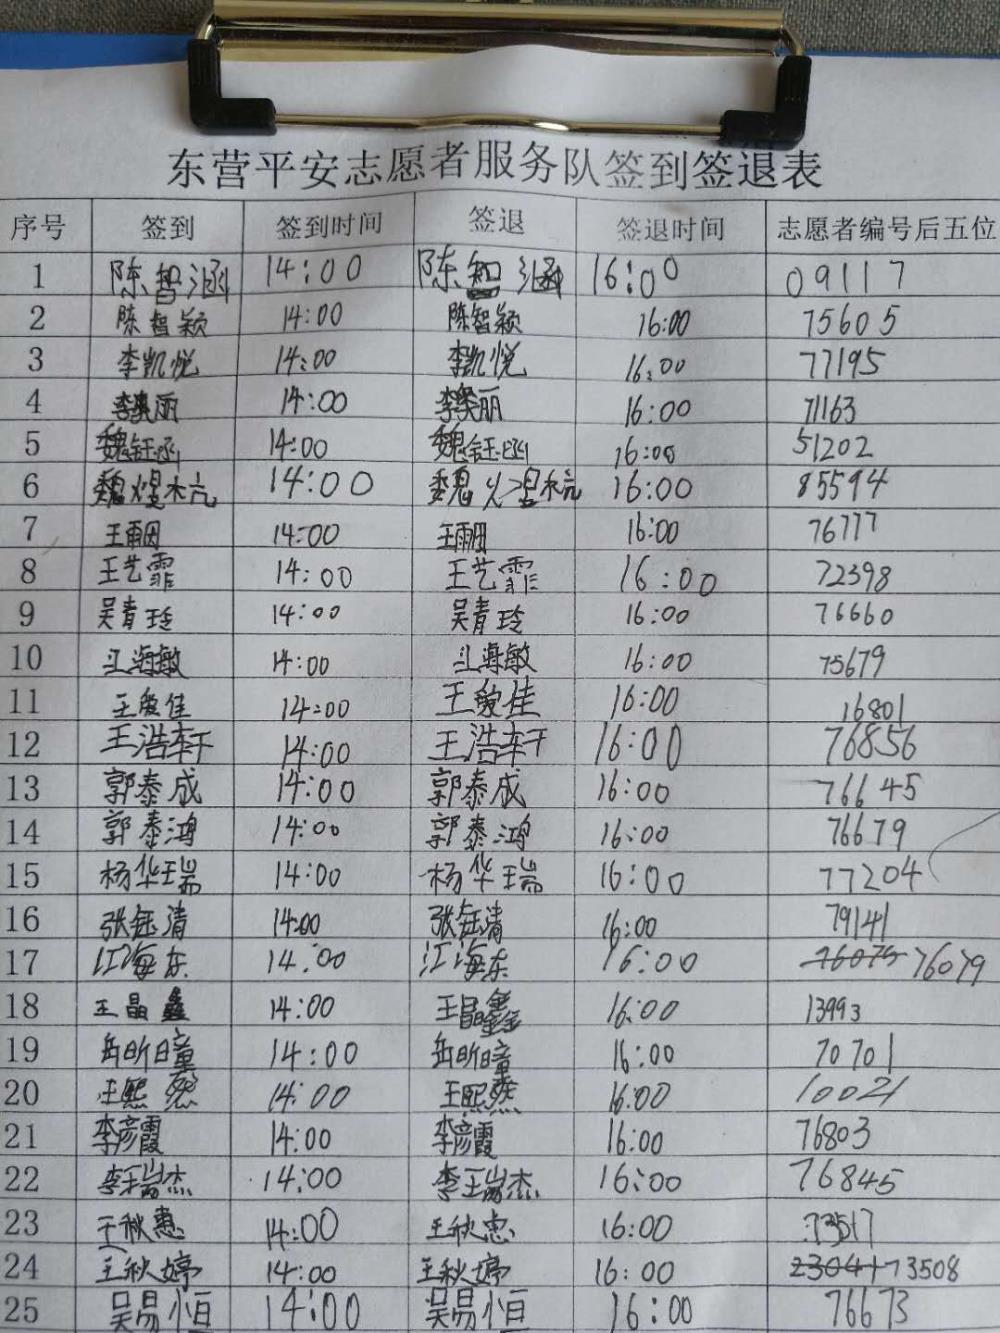 东营平安志愿者服务队签到签退表
序号 签到 签到时间 签退 签退时间 志愿者编号后五位
1 陈智涵 14:00 陈智涵 16:00 09117
2 陈智颖 14:00 陈智颖 16:00 75605
3 李凯悦 14:00 李凯悦 16:00 77195
4 李美丽 14:00 李美丽 16:00 71163
5 魏钰函 14:00 魏钰函 16:00 51202
6 魏煜杭 14:00 魏煜杭 16:00 85594
7 王雨田 14:00 王雨田 16:00 76777
8 王艺霏 14:00 王艺霏 16:00 72398
9 吴青玲 14:00 吴青玲 16:00 76660
10 江海敏 14:00 江海敏 16:00 75679
11 王俊佳 14:00 王俊佳 16:00 16801
12 王浩轩 14:00 王浩轩 16:00 76856
13 郭泰成 14:00 郭泰成 16:00 76645
14 郭泰鸿 14:00 郭泰鸿 16:00 76679
15 杨华瑞 14:00 杨华瑞 16:00 77204
16 张钰清 14:00 张钰清 16:00 79141
17 江海东 14:00 江海东 16:00 76079
18 王晶鑫 14:00 王晶鑫 16:00 13993
19 岳昕瞳 14:00 岳昕瞳 16:00 70701
20 王熙然 14:00 王熙然 16:00 10021
21 李彦霞 14:00 李彦霞 16:00 76803
22 李瑞杰 14:00 李瑞杰 16:00 76845
23 王秋惠 14:00 王秋惠 16:00 73517
24 王秋婷 14:00 王秋婷 16:00 23041 73508
25 吴易恒 14:00 吴易恒 16:00 76673